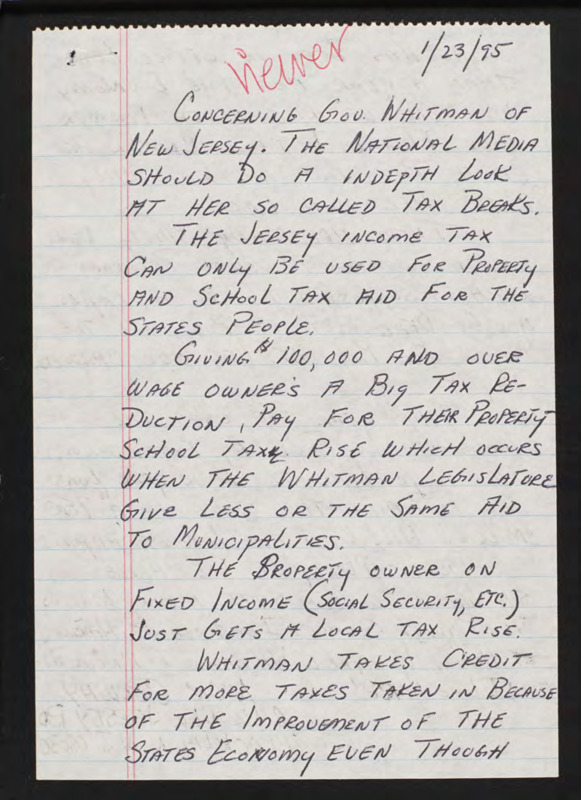 viewer
1/23/95
CONCERNING GOV. WHITMAN OF
NEW JERSEY. THE NATIONAL MEDIA
SHOULD DO A INDEPTH LOOK
AT HER SO CALLED TAX BREAKS.
THE JERSEY INCOME TAX
CAN ONLY BE USED FOR PROPERTY
AND SCHOOL TAX AID FOR THE
STATES PEOPLE.
GIVING $100,000 AND OVER
WAGE OWNER'S A BIG TAX RE-
DUCTION, PAY FOR THEIR PROPERTY
SCHOOL TAX RISE WHICH OCCURS
WHEN THE WHITMAN LEGISLATURE
GIVE LESS OR THE SAME AID
TO MUNICIPALITIES.
THE PROPERTY OWNER ON
FIXED INCOME (SOCIAL SECURITY, ETC.)
JUST GETS A LOCAL TAX RISE.
WHITMAN TAKES CREDIT
FOR MORE TAXES TAKEN IN BECAUSE
OF THE IMPROVEMENT OF THE
STATES ECONOMY EVEN THOUGH